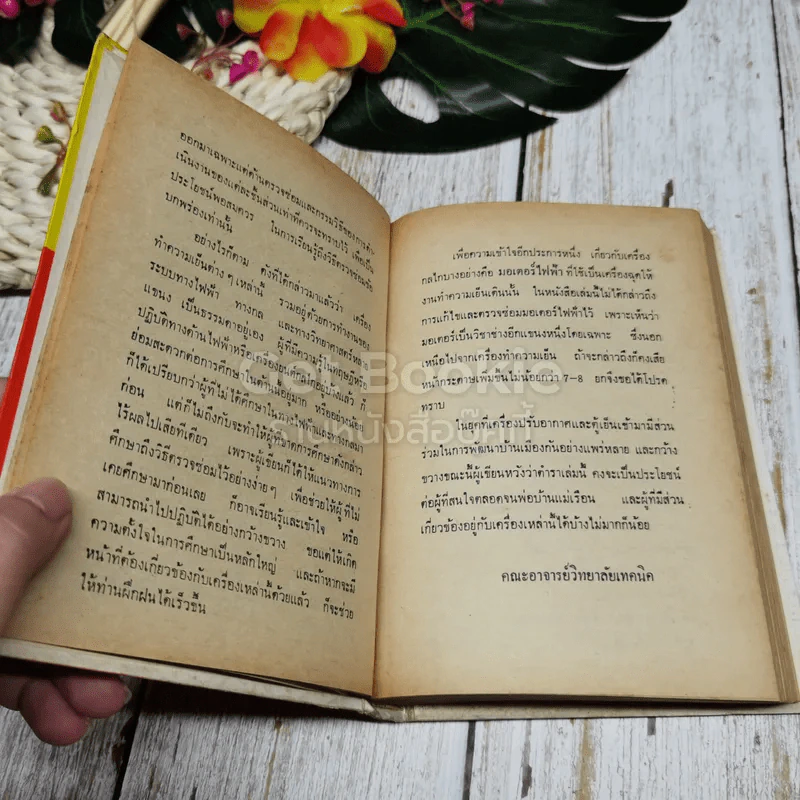 ออกมาเฉพาะแต่ด้านตรวจซ่อมและกรรมวิธีของการดำ
เนินงานของแต่ละชิ้นส่วนเท่าที่ควรจะทราบไว้ เพื่อเป็น
ประโยชน์พอสมควร ในการเรียนรู้ถึงวิธีตรวจซ่อมข้อ
บกพร่องเท่านั้น
อย่างไรก็ตาม ดังที่ได้กล่าวมาแล้วว่า เครื่อง
ทำความเย็นต่างๆเหล่านี้ รวมอยู่ด้วยการทำงานของ
ระบบทางไฟฟ้า ทางกล และทางวิทยาศาสตร์หลาย
แขนง เป็นธรรมดาอยู่เอง ผู้ที่มีความรู้ในทฤษฎีหรือ
ปฏิบัติทางด้านไฟฟ้าหรือเครื่องยนต์กลไกอยู่บ้างแล้ว ก็
ย่อมสะดวกต่อการศึกษาในด้านนี้อยู่มาก หรืออย่างน้อย
ก็ได้เปรียบกว่าผู้ที่ไม่ได้ศึกษาในทางไฟฟ้าและทางกลมา
ก่อน แต่ก็ไม่ถึงกับจะทำให้ผู้ที่ขาดการศึกษาดังกล่าว
ไร้ผลไปเสียทีเดียว เพราะผู้เขียนก็ได้ให้แนวทางการ
ศึกษาถึงวิธีตรวจซ่อมไว้อย่างง่ายๆ เพื่อช่วยให้ผู้ที่ไม่
เคยศึกษามาก่อนเลย ก็อาจจะเรียนรู้และเข้าใจ หรือ
สามารถนำไปปฏิบัติได้อย่างกว้างขวาง ขอแต่ให้เกิด
ความตั้งใจในการศึกษาเป็นหลักใหญ่ และถ้าหากจะมี
หน้าที่ต้องเกี่ยวข้องกับเครื่องเหล่านี้ด้วยแล้ว ก็จะช่วย
ให้ท่านฝึกฝนได้เร็วขึ้น
เพื่อความเข้าใจอีกประการหนึ่ง เกี่ยวกับเครื่อง
กลไกบางอย่างคือ มอเตอร์ไฟฟ้า ที่ใช้เป็นเครื่องฉุดให้
งานทำความเย็นเดินนั้น ในหนังสือเล่มนี้ไม่ได้กล่าวถึง
การแก้ไขและตรวจซ่อมมอเตอร์ไฟฟ้าไว้ เพราะเห็นว่า
มอเตอร์เป็นวิชาช่างอีกแขนงหนึ่งโดยเฉพาะ ซึ่งนอก
เหนือไปจากเครื่องทำความเย็น ถ้าจะกล่าวถึงก็คงเสีย
หน้ากระดาษเพิ่มขึ้นไม่น้อยกว่า 7-8 ยกจึงขอได้โปรด
ทราบ
ในยุคที่เครื่องปรับอากาศและตู้เย็นเข้ามามีส่วน
ร่วมในการพัฒนาบ้านเมืองกันอย่างแพร่หลาย และกว้าง
ขวางขณะนี้ผู้เขียนหวังว่าตำราเล่มนี้ คงจะเป็นประโยชน์
ต่อผู้ที่สนใจตลอดจนพ่อบ้านแม่เรือน และผู้ที่มีส่วน
เกี่ยวข้องอยู่กับเครื่องเหล่านี้ได้บ้างไม่มากก็น้อย
คณะอาจารย์วิทยาลัยเทคนิค
Got Bookie
ร้านหนังสือบุ๊คกี้